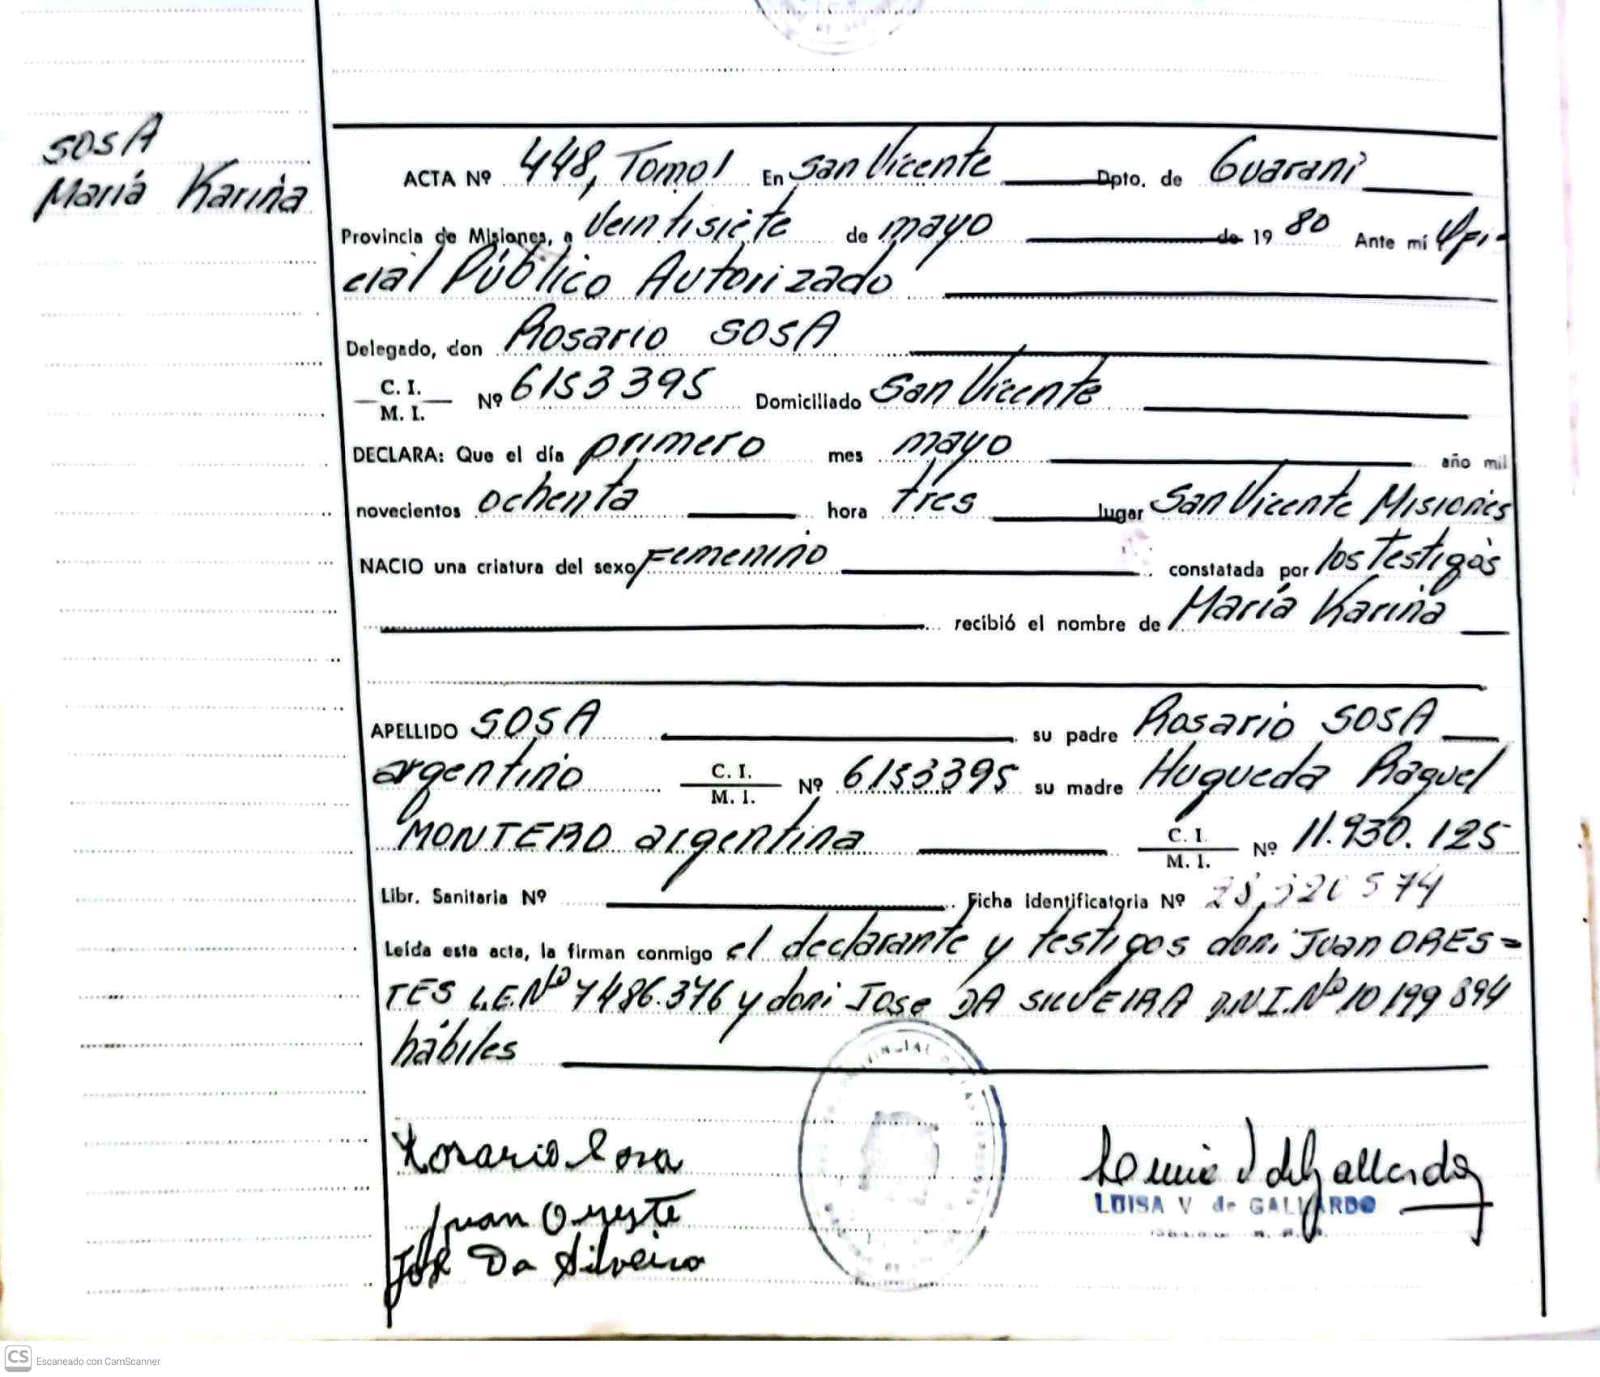 SOSA
María Karina
ACTA Nº 448, Tomo I En San Vicente Dpto. de Guaraní
Provincia de Misiones, a veintisiete de mayo de 1980 Ante mí Ofi-
cial Público Autorizado
Delegado, don Rosario SOSA
C. I.
M. I. Nº 6153395 Domiciliado San Vicente
DECLARA: Que el día primero mes mayo año mil
novecientos ochenta hora tres lugar San Vicente Misiones
NACIO una criatura del sexo Femenino constatada por los testigos
recibió el nombre de María Karina
APELLIDO SOSA su padre Rosario SOSA
argentino C. I. M. I. Nº 6153395 su madre Hugueda Raquel
MONTERO argentina C. I. M. I. Nº 11.930.125
Libr. Sanitaria Nº Ficha Identificatoria Nº
Leída esta acta, la firman conmigo el declarante y testigos don: Juan ORES=
TES L.E.Nº 7486.376 y don: Jose DA SILVEIRA D.N.I.Nº 10199894
hábiles
Rosario Sosa
Juan Oreste
José Da Silveira
LUISA V de GALLARDO
CS Escaneado con CamScanner